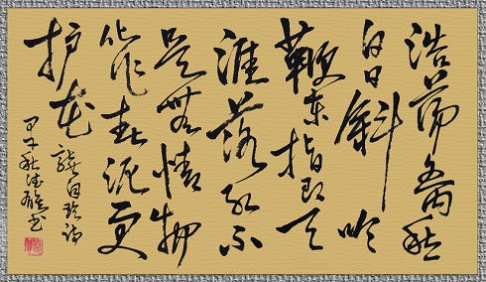 浩荡离愁
白日斜吟
鞭东指即天
涯落红不
是無情物
化作春泥更
护花
龚自珍诗
秋书